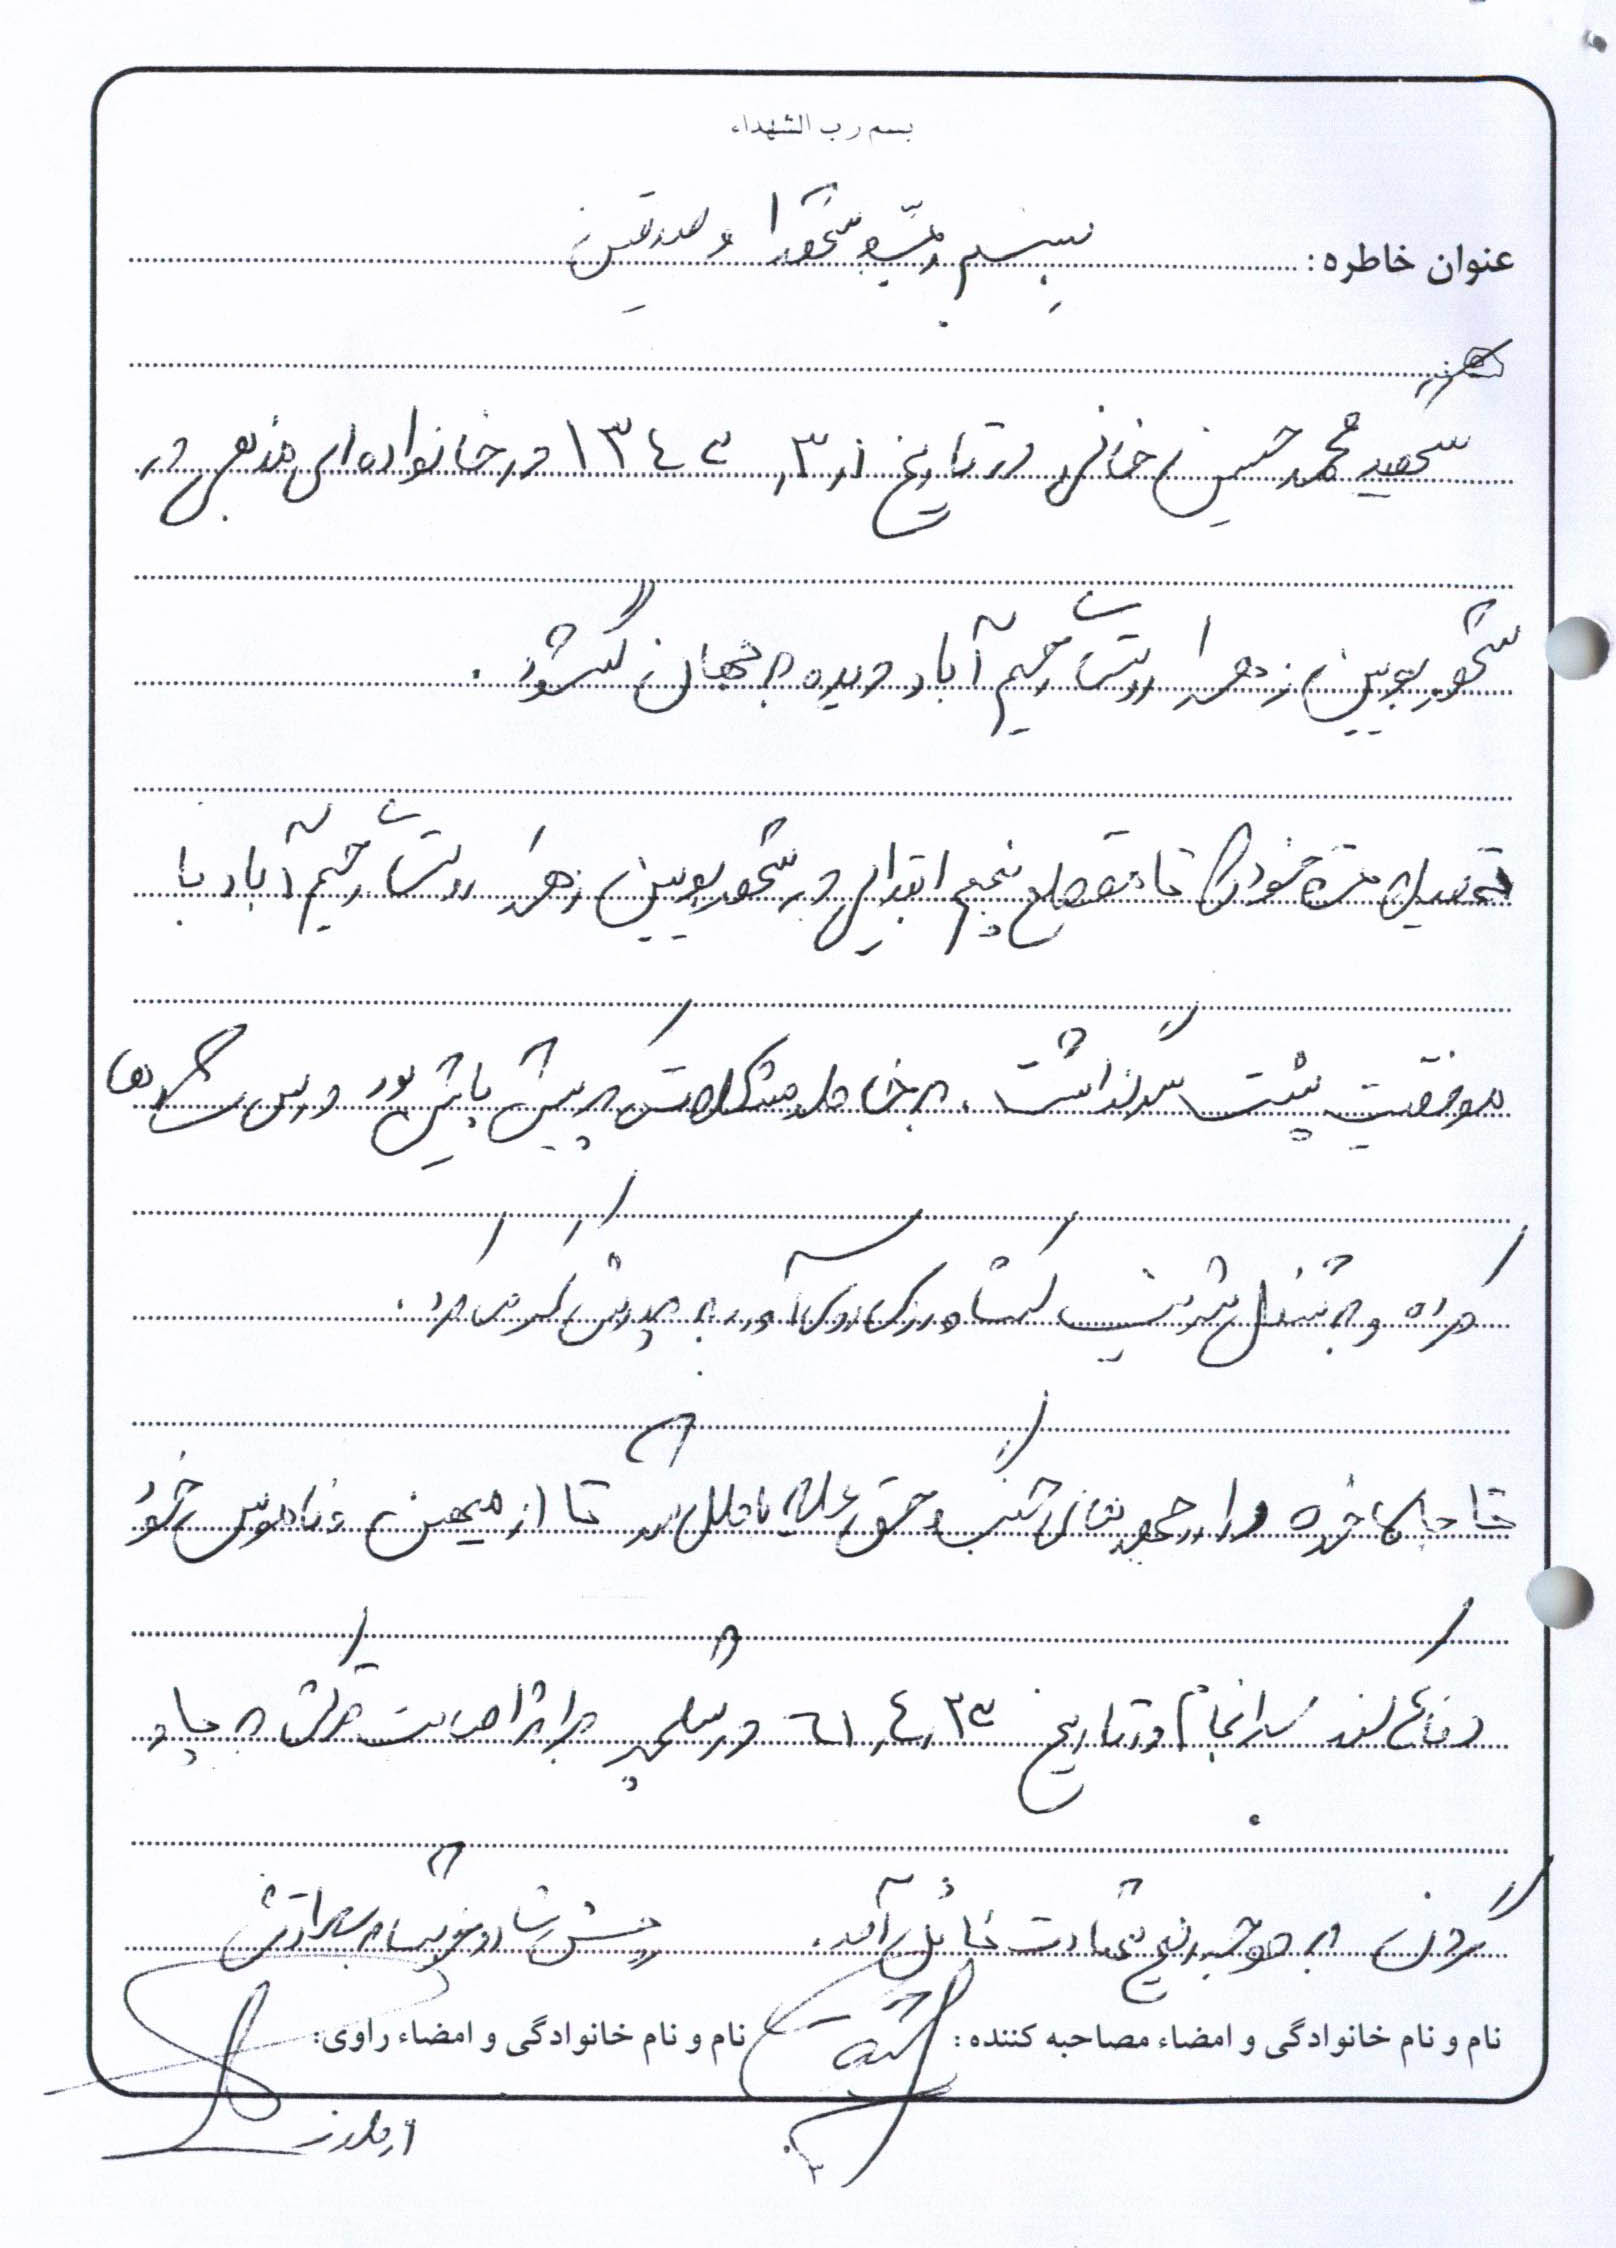 بسم رب الشهداء
عنوان خاطره: بسم رب شهدا و صدیقین
شهید محمد حسین خانی در تاریخ ۱۳۴۴٫۳٫۱ در خانواده ای مذهبی در
شهر بویین زهرا روستا رحیم آباد دیده به جهان گشود.
تحصیلات خود را تا مقطع پنجم ابتدایی در شهر بویین زهرا روستا رحیم آباد با
موفقیت پشت سر گذاشت. به خاطر مشکلات که پیش پایش بود درس را رها
کرده و به شغل شریف کشاورزی روی آورد به پدرش کمک می کرد.
تا بالاخره وارد جبهه های جنگ حق علیه باطل شد تا از میهن و ناموس خود
دفاع کند سرانجام در تاریخ ۶۱٫۴٫۲۳ در شلمچه بر اثر اصابت ترکش به
گردن به درجه رفیع شهادت نائل آمد. روحش شاد و
نام و نام خانوادگی و امضاء مصاحبه کننده: نام و نام خانوادگی و امضاء راوی:
۳